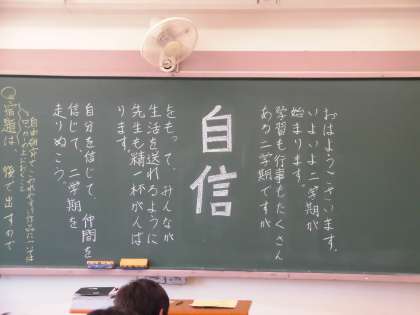 おはようございます。
いよいよ二学期が
始まります。
学習も行事もたくさん
ある二学期ですが
自信
をもって、みんなが
生活を送れるように
先生も精一杯がんば
ります。
自分を信じて、仲間を
信じて、二学期を
走りぬこう。
宿題は 後で出すので